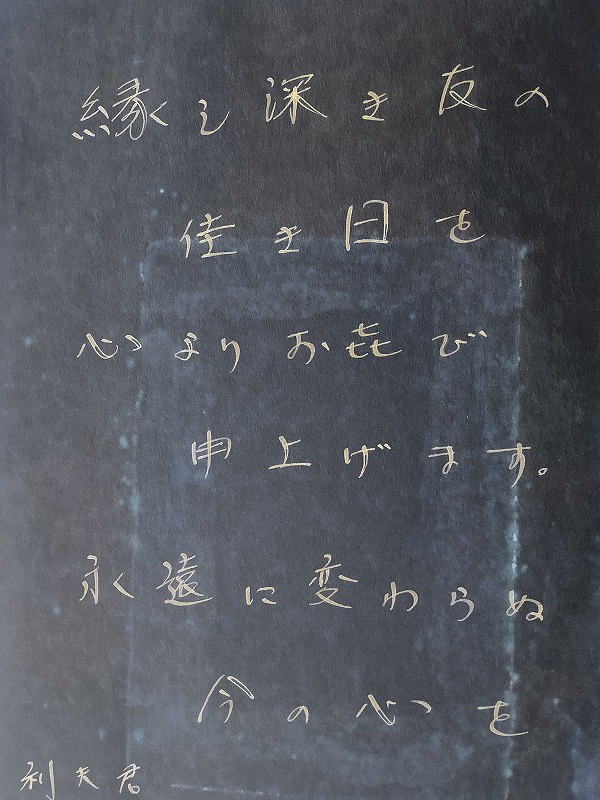 縁し深き友の
佳き日を
心よりお㐂び
申上げます。
永遠に変わらぬ
今の心を
利夫君